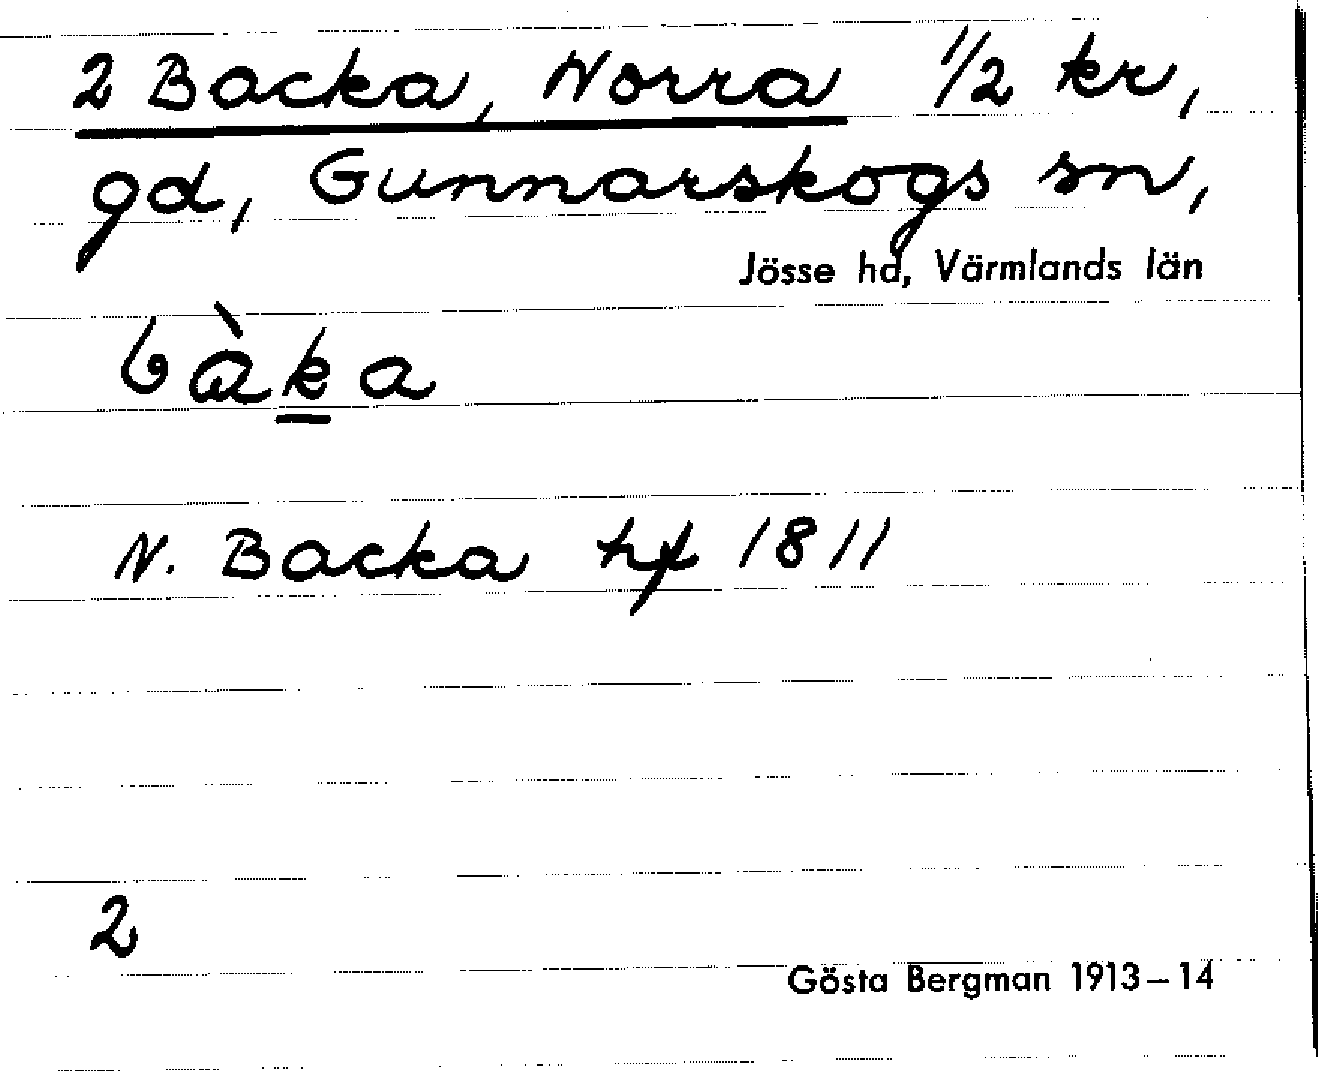 2 Backa, Norra 1/2 kr,
gd, Gunnarskogs sn,
Jösse hd, Värmlands län
bàka
N. Backa hfl 1811
2
Gösta Bergman 1913–14